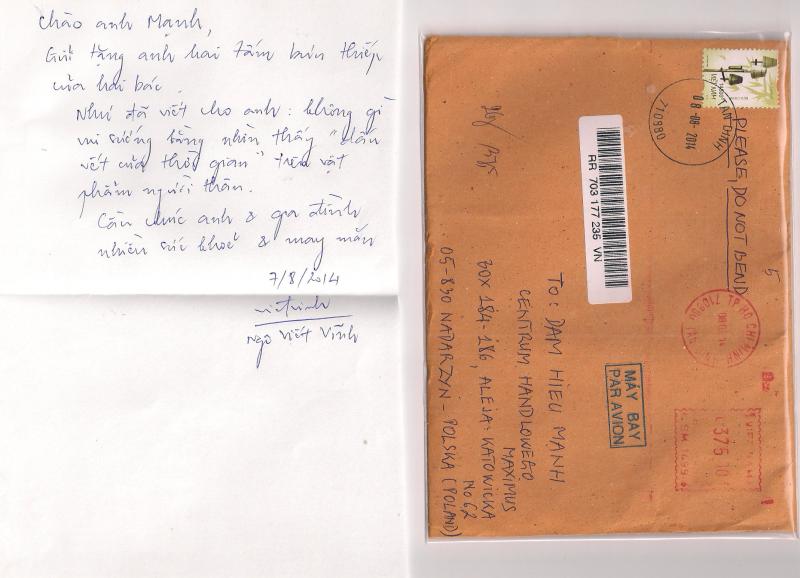 Chào anh Mạnh,
Gửi tặng anh hai tấm bưu thiếp
của hai bác.
Như đã viết cho anh: không gì
vui sướng bằng nhìn thấy "dấu
vết của thời gian" trên vật
phẩm người thân.
Cầu chúc anh & gia đình
nhiều sức khoẻ & may mắn
7/8/2014
Ngô Viết Vinh
VIỆT NAM
TAN DINH
08-08-2014
710980
PLEASE, DO NOT BEND
5
RR 703 177 235 VN
TP HO CHI MINH
MÁY BAY
PAR AVION
375 10
To: DAM HIEU MANH
CENTRUM HANDLOWEGO
MAXIMUS
BOX 184-186, ALEJA: KATOWICKA
No 62
05-830 NADARZYN - POLSKA (POLAND)